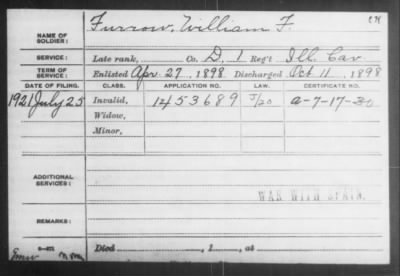 Furrow, William F.
NAME OF SOLDIER:
SERVICE: Late rank, Co. D. 1 Reg't Ill. Cav.
TERM OF SERVICE: Enlisted Apr. 27, 1898. Discharged Oct 11, 1898
DATE OF FILING. CLASS. APPLICATION NO. LAW. CERTIFICATE NO.
1921 July 25 Invalid, 1453689 a-7-17-30
Widow,
Minor,
ADDITIONAL SERVICES:
WAR WITH SPAIN.
REMARKS:
Died , 1 , at